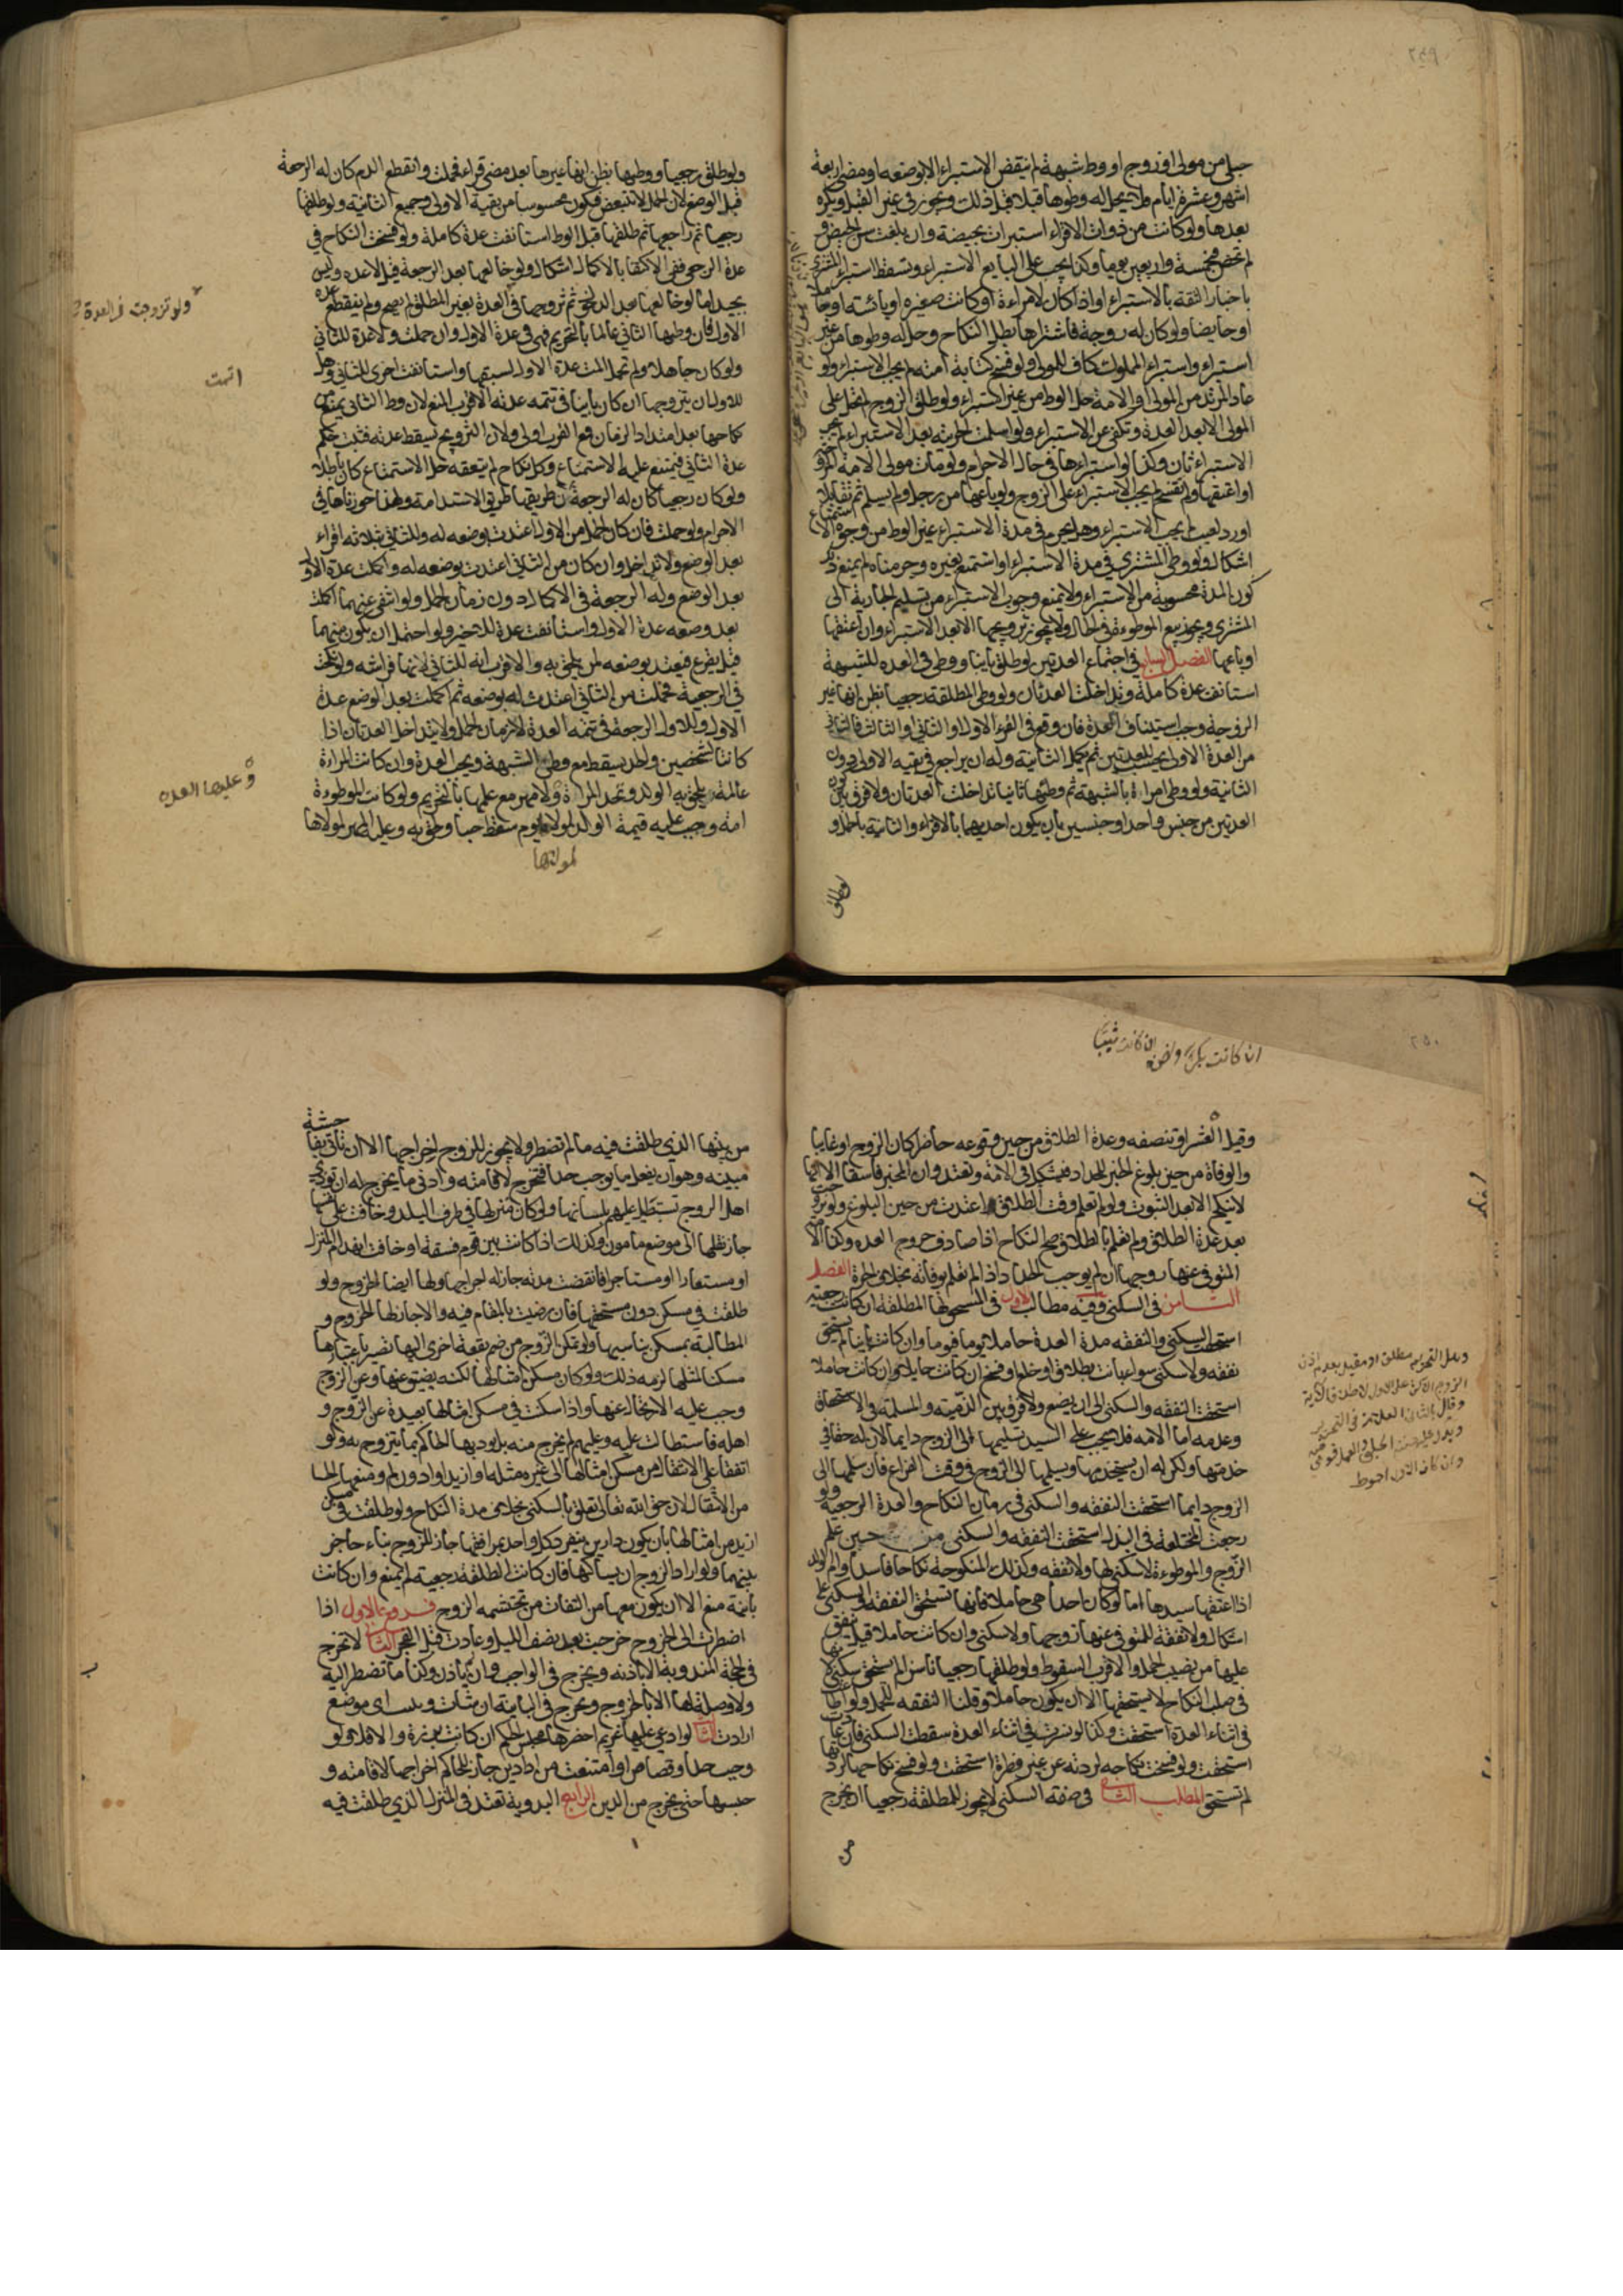 ٢٤٩
حبلى من مولى او زوج او وطئ شبهة لم ينقض الاستبراء الا بوضعه او مضى اربعة
اشهر وعشرة ايام فلا يحل له وطوها قبلا قبل ذلك ويجوز في غير القبل ويكره
بعدها ولو كانت من ذوات الاقراء استبرات بحيضة وان بلغت سن الحيض و
لم تحض فبخمسة واربعين يوما وكذا يجب على البايع الاستبراء ويسقط استبراء المشترى
باخبار الثقة بالاستبراء او اذا كان لامراءة او كانت صغيره او يائسة او حاملا
او حايضا ولو كان له زوجة فاشتراها بطل النكاح وحل له وطوها من غير
استبراء واستبراء المملوك كاف للمولى ولو فسخ كتابة امته لم يجب الاستبراء ولو
عاد المرتد من المولى او الامة حل الوطء من غير استبراء ولو طلق الزوج لم تحل على
المولى الا بعد العدة وتكفى عن الاستبراء ولو اسلمت الحربية بعد الاستبراء لم يجب
الاستبراء ثان وكذا لو استبراءها في حال الاحرام ولو مات مولى الامة
او اعتقها ولم تفسخ لم يجب الاستبراء على الزوج ولو باعها من رجل ولم يسلم ثم تقايلا
او رد لعيب لم يجب الاستبراء وهل يحرم في مدة الاستبراء غير الوطء من وجوه الاستمتاع
اشكال ولو وطئ المشترى في مدة الاستبراء او استمتع بغيره وحرمناه لم يمنع ذلك
كون المدة محسوبة من الاستبراء ولا يمنع وجوب الاستبراء من تسليم الجارية الى
المشترى ويجوز بيع الموطوءة في الحال ولا يجوز تزويجها الا بعد الاستبراء وان اعتقها
او باعها الفصل السابع في اجتماع العدتين لو طلق باينا ووطئ في العده للشبهة
استانفت عدة كاملة وتداخلت العدتان ولو وطئ المطلقة رجعيا بظن انها غير
الزوجة وجب استيناف العدة فان وقع في القرء الاول او الثاني او الثالث فالباقي
من العدة الاولى يحسب للعدتين ثم يكمل الثانية وله ان يراجع في بقيه الاولى دون
الثانية ولو وطئ امراة بالشبهة ثم وطئها ثانيا تداخلت العدتان ولا فرق بين كون
العدتين من جنس واحد او جنسين بان يكون احديهما بالاقراء والثانية بالحمل و
ولو طلق
ولو طلق رجعيا ووطيها بظن انها غيرها بعد مضى قراء فحملت وانقطع الدم كان له الرجعة
قبل الوضع لان الحمل لا يتبعض فيكون محسوبا من بقية الاولى وجميع الثانية ولو طلقها
رجعيا ثم راجعها ثم طلقها قبل الوطء استانفت عدة كاملة ولو فسخت النكاح في
عدة الرجعى ففى الاكتفا بالاكمال اشكال ولو خالعها بعد الرجعة قيل لا عده وليس
بجيد اما لو خالعها بعد الدخول ثم تزوجها في العدة بغير المطلق لم يصح ولم ينقطع عدة
الاول فان وطيها الثاني عالما بالتحريم فهى في عدة الاول وان حملت ولا عدة للثاني
ولو كان جاهلا ولم تحمل اتمت عدة الاول لسبقها واستانفت اخرى للثاني وهل
للاول ان يتزوجها ان كان باينا في تتمه عدته الاقرب المنع لان وطء الثاني يمنع من
نكاحها بعد امتداد الزمان فمع القرب اولى ولان التزويج يسقط عدته فثبت حكم
عدة الثاني فيمتنع عليه الاستمتاع وكل نكاح لم يتعقبه حل الاستمتاع كان باطلا
ولو كان رجعيا كان له الرجعة لان طريقها طريق الاستدامة ولهذا جوزناها في
الاحرام ولو حملت فان كان الحمل من الاول اعتدت بوضعه له وللثاني بثلاثة اقراء
بعد الوضع ولا تداخل وان كان من الثاني اعتدت بوضعه له واكملت عدة الاول
بعد الوضع وله الرجعة في الاكمال دون زمان الحمل ولو انتفى عنهما اكملت
بعد وضعه عدة الاول واستانفت عدة للاخير ولو احتمل ان يكون منهما
قيل يقرع فيعتد بوضعه لمن يلحق به والاقرب انه للثاني لانها فراشه ولو نكحت
في الرجعية فحملت من الثاني اعتدت له بوضعه ثم اكملت بعد الوضع عدة
الاول وللاول الرجعة في تتمه العدة لا زمان الحمل ولا يتداخل العدتان اذا
كانتا لشخصين والحد يسقط مع وطى الشبهة ويجب العدة وان كانت المراءة
عالمة ويلحق به الولد وتحد المراة ولا مهر مع علمها بالتحريم ولو كانت الموطوءة
امة وجب عليه قيمة الولد لمولاها يوم سقط حيا ولحق به وعليه المهر لمولاها
لمولاها
ولو تزوجت في العدة
اتمت
وعليها العده
٢٥٠
ان كانت بكرا ونصفه ان كانت ثيبا
وقيل العشر او نصفه وعدة الطلاق من حين وقوعه حاضرا كان الزوج او غايبا
والوفاة من حين بلوغ الخبر للحداد فيشكل في الامة وتعتد وان المخبر فاسقا الا انها
لا ينكح الا بعد الثبوت ولو لم تعلم وقت الطلاق اعتدت من حين البلوغ ولو تزوجت
بعد عدة الطلاق ولم تعلم بالطلاق صح النكاح اذا صادف خروج العده وكذا الامة
المتوفى عنها زوجها ان لم يوجب الحداد اذا لم تعلم بوفاته بخلاف الحرة الفصل
الثامن في السكنى وفيه مطالب الاول في المستحق لها المطلقة ان كانت رجعية
استحقت السكنى والنفقه مدة العدة حاملا يوما فيوما وان كانت باينا لم تستحق
نفقه ولا سكنى سواء بانت بطلاق او خلع او فسخ ان كانت حايلا وان كانت حاملا
استحقت النفقه والسكنى الى ان يضع ولا فرق بين الذميه والمسلمة في الاستحقاق
وعدمه اما الامه فلا يجب على السيد تسليمها الى الزوج دايما لان له حقا في
خدمتها ولكن له ان يستخدمها ويسلمها الى الزوج في وقت الفراغ فان سلمها الى
الزوج دايما استحقت النفقه والسكنى في زمان النكاح والعدة الرجعية ولو
رجعت المختلعة في البذل استحقت النفقه والسكنى من حين علم
الزوج والموطوءة لا سكنى لها ولا نفقه وكذلك المنكوحة نكاحا فاسدا وام الولد
اذا اعتقها سيدها اما لو كان احداهن حاملا فانها تستحق النفقه والسكنى على
اشكال ولا نفقة للمتوفى عنها زوجها ولا سكنى وان كانت حاملا قيل ينفق
عليها من نصيب الحمل والاقرب السقوط ولو طلقها رجعيا ناشزا لم تستحق سكنى لانها
في صلب النكاح لا يستحقها الا ان يكون حاملا وقلنا النفقه للحمل ولو اطاعت
في اثناء العدة استحقت وكذا لو نشزت في اثناء العدة سقطت السكنى فان عادت
استحقت ولو فسخت نكاحه لردته عن غير فطرة استحقت ولو فسخ نكاحها لردتها
لم تستحق المطلب الثاني في صفة السكنى لا يجوز للمطلقة رجعيا ان يخرج
من
وهل التحريم مطلق او مقيد بعدم اذن
وان كان الاول احوط
من بيتها الذي طلقت فيه ما لم تضطر ولا يجوز للزوج اخراجها الا ان تاتى بفاحشة
مبينه وهو ان يفعل ما يوجب حدا فتخرج لاقامته وادنى ما يخرج له ان توذى
اهل الزوج تستطيل عليهم بلسانها ولو كان منزلها في طرف البلد وخافت على نفسها
جاز نقلها الى موضع مامون وكذلك اذا كانت بين قوم فسقة او خافت انهدام المنزل
او مستعارا او مستاجرا فانقضت مدته جاز له اخراجها ولها ايضا الخروج ولو
طلقت في مسكن دون مستحقها فان رضيت بالمقام فيه والا جاز لها الخروج و
المطالبة بمسكن يناسبها ولو تمكن الزوج من ضم بقعة اخرى اليها تصير باعتبارها
مسكنا لمثلها لزمه ذلك ولو كان مسكن امثالها لكنه يضيق عنها وعن الزوج
وجب عليه الارتحال عنها واذا سكنت في مسكن امثالها بعيدة عن الزوج و
اهله فاستطالت عليه وعليهم لم يخرج منه بل يوديها الحاكم بما ينزجر به ولو
اتفقا على الانتقال من مسكن امثالها الى غيره مثله او ازيد او ادون لم ومنعها الحاكم
من الانتقال لان حق الله تعالى تعلق بالسكنى بخلاف مدة النكاح ولو طلقت في مسكن
ازيد من امثالها بان يكون دارين ينفرد كل واحد بمرافقها جاز للزوج بناء حاجز
بينهما ولو اراد الزوج ان يساكنها فان كانت المطلقة رجعية لم يمنع وان كانت
باينة منع الا ان يكون معها من الثقات من تحتشمه الزوج فروع الاول اذا
اضطرت الى الخروج خرجت بعد نصف الليل وعادت قبل الفجر الثاني لا تخرج
في الحجة المندوبة الا باذنه ويخرج في الواجب وان لم ياذن وكذا ما تضطر اليه
ولا وصلة لها الا بالخروج ويخرج في الباينة ان شات وبلى اى موضع
ارادت الثالث لو ادعى عليها غريم احضرها مجلس الحكم ان كانت برزة والا فلا ولو
وجب حد او قصاص او امتنعت من اداء دين جاز للحاكم اخراجها لاقامته و
حبسها حتى يخرج من الدين الرابع البدوية تعتد في المنزل الذي طلقت فيه